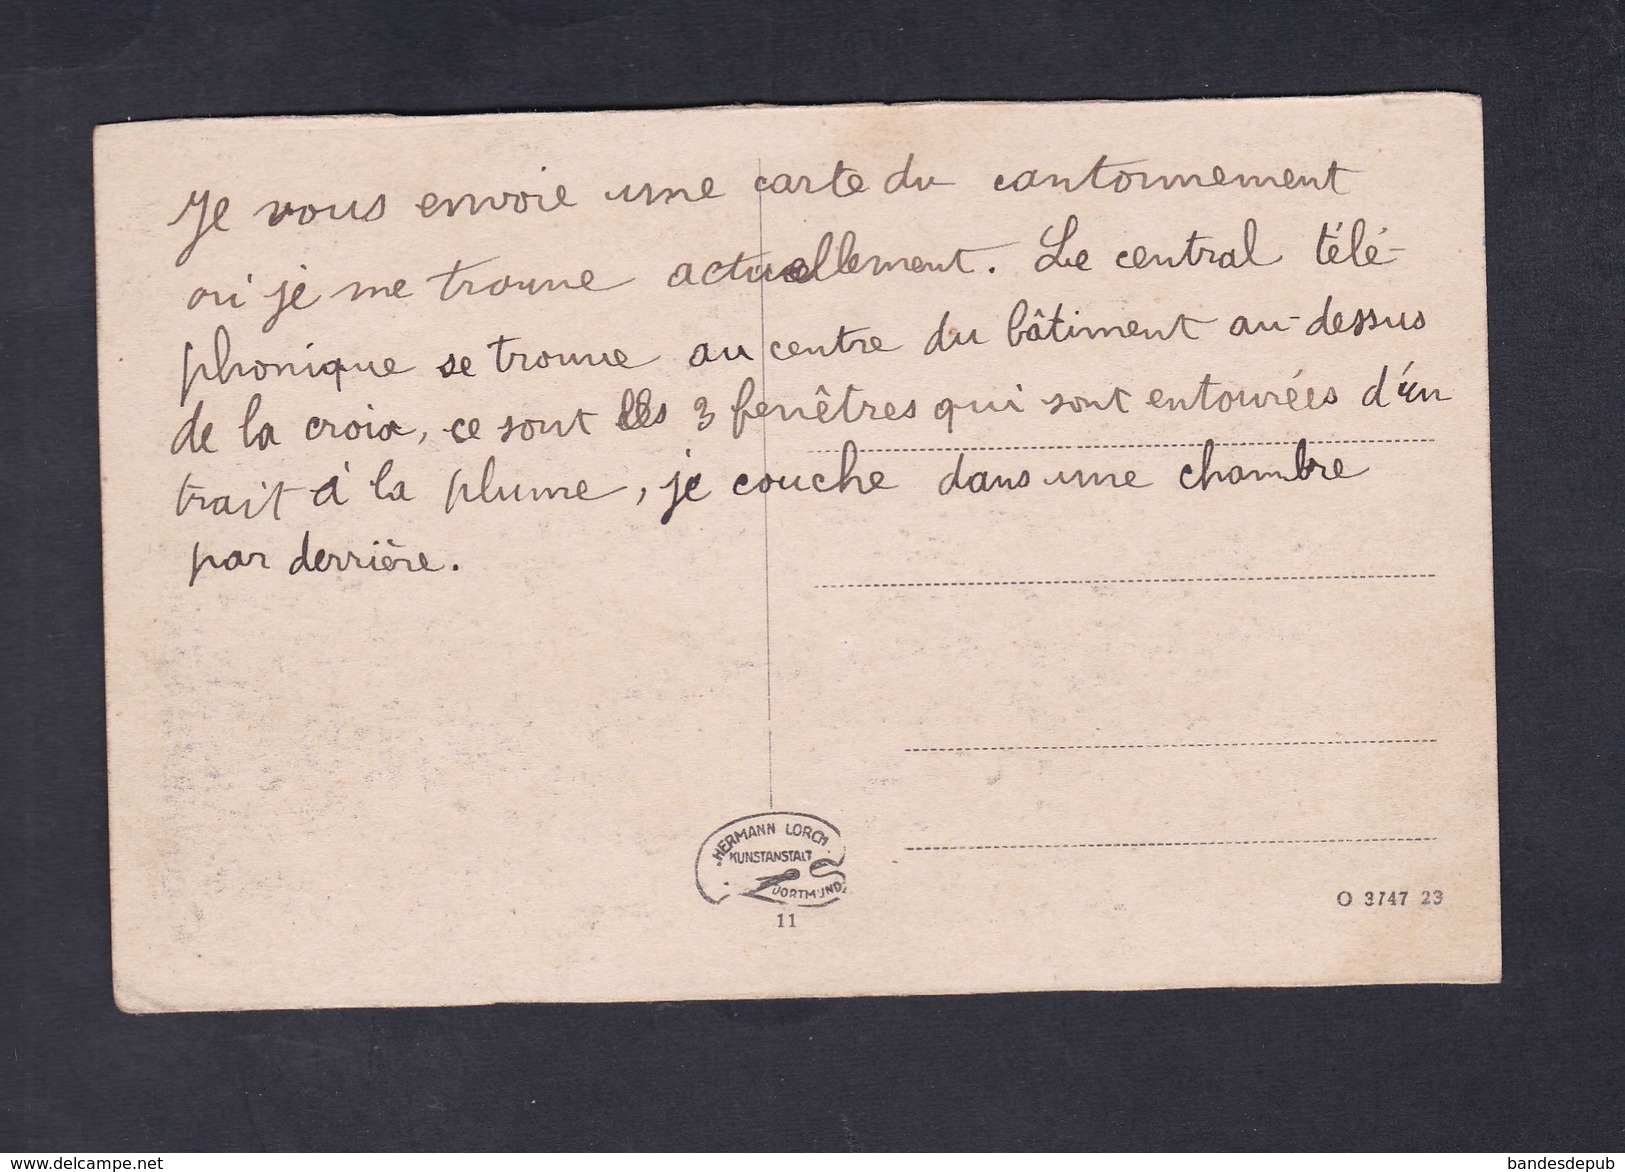 Je vous envoie une carte du cantonnement
où je me trouve actuellement. Le central télé-
phonique se trouve au centre du bâtiment au-dessus
de la croix, ce sont les 3 fenêtres qui sont entourées d'un
trait à la plume, je couche dans une chambre
par derrière.
HERMANN LORCH
KUNSTANSTALT
DORTMUND
11
O 3747 23
www.delcampe.net
bandesdepub